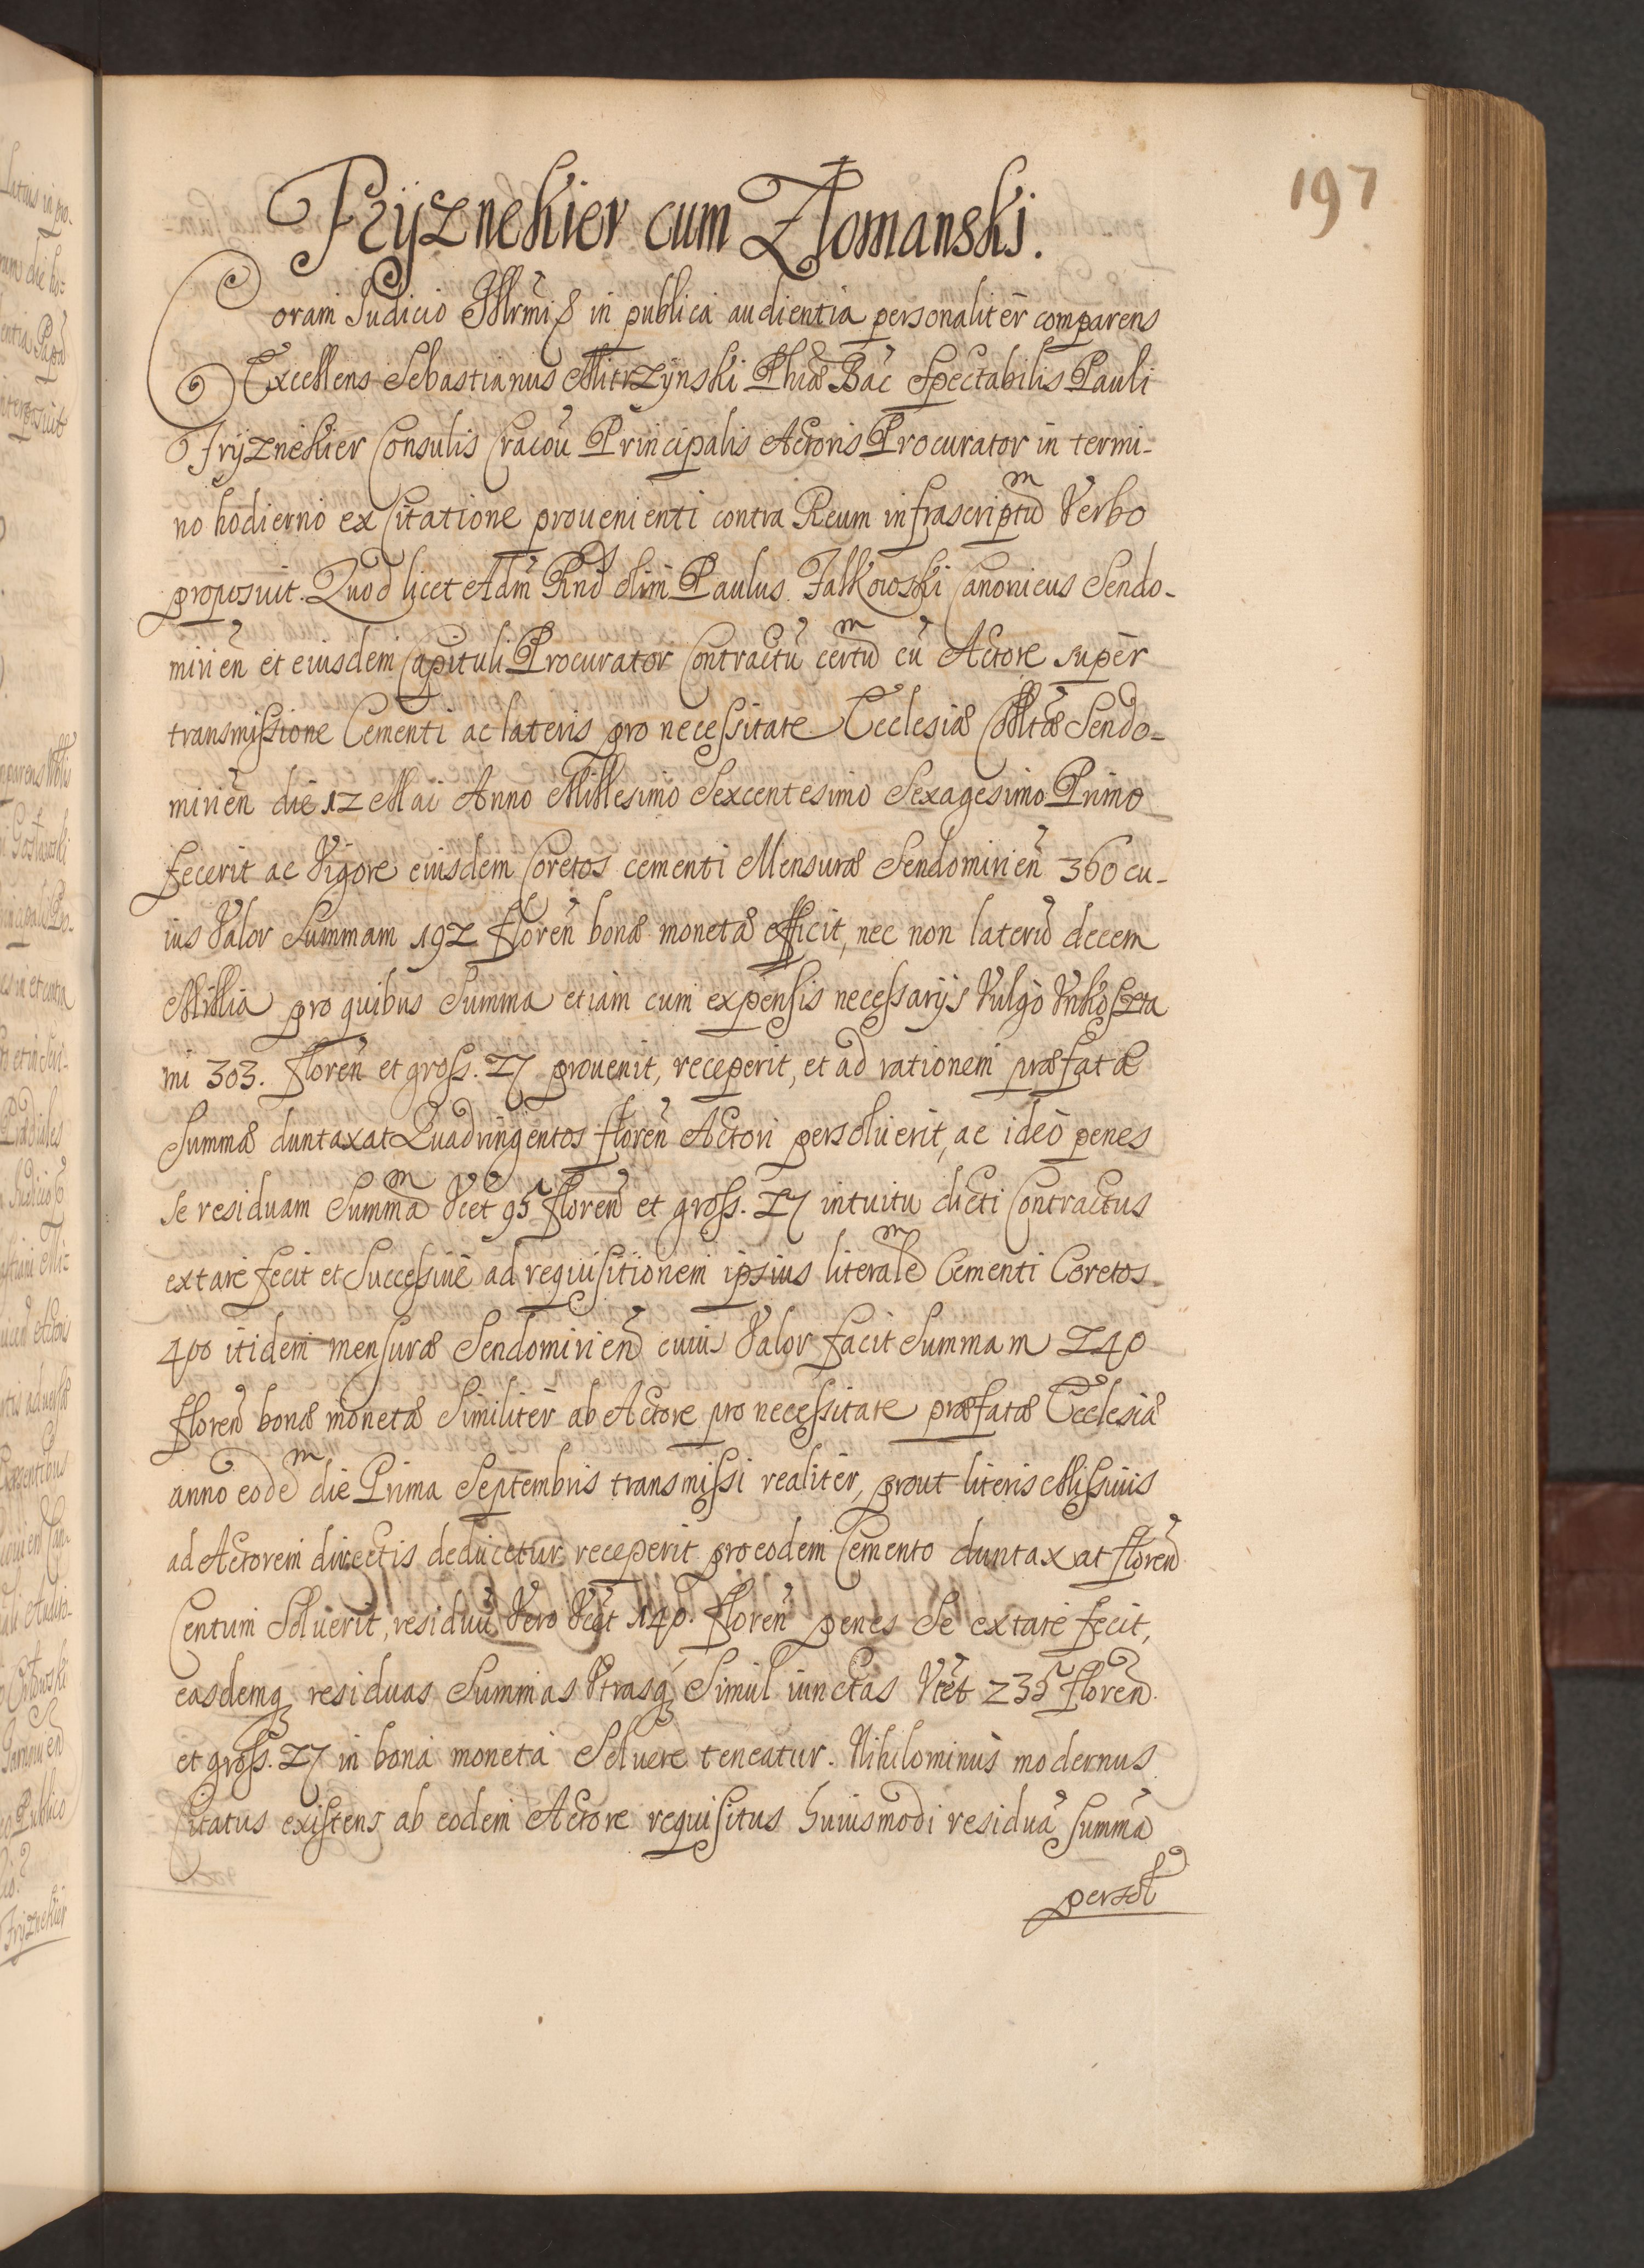 197
Fryznekier cum Złomanski.
Coram Judicio Illrmi &c in publica audientia personaliter comparens
Excellens Sebastianus Mitrzynski Phiæ Bac Spectabilis Pauli
Fryznekier Consulis Cracou Principalis Actoris Procurator in termi-
no hodierno ex Citatione prouenienti contra Reum infrascriptum Verbo
proposuit. Quod licet Adm Rnd olim Paulus Falkowski Canonicus Sendo-
mirien et eiusdem Capituli Procurator Contractu certum cu Actore super
transmissione Cementi ac lateris pro necessitate Ecclesiæ Colltæ Sendo-
mirien die 12 Mai Anno Millesimo Sexcentesimo Sexagesimo Primo
fecerit ac Vigore eiusdem Coretos cementi Mensuræ Sendomirien 360 cu-
ius Valor Summam 192 floren bonæ monetæ efficit, nec non lateru decem
Millia pro quibus Summa etiam cum expensis necessarijs Vulgo Vnkoszta
mi 303. floren et gross. 27 prouenit, receperit, et ad rationem præfatæ
Summæ duntaxat Quadringentos floren Actori persoluerit, ac ideo penes
se residuam Summam Vcet 95 floren et gross. 27 intuitu dicti Contractus
extare fecit et Successiue ad requisitionem ipsius literalem Cementi Coretos
400 itidem mensuræ Sendomirien cuius Valor facit Summam 240
floren bonæ monetæ Similiter ab Actore pro necessitate præfatæ Ecclesiæ
anno eodem die Prima Septembris transmissi realiter, prout literis Missiuis
ad Actorem directis deducetur receperit pro eodem Cemento duntaxat floren
Centum Soluerit, residuu Vero Vcet 140. floren penes Se extare fecit,
easdemq residuas Summas Vtrasq Simul iunctas Vcet 235 floren
et gross. 27 in bona moneta Soluere teneatur. Nihilominus modernus
Citatus existens ab eodem Actore requisitus huiusmodi residua summa
persol